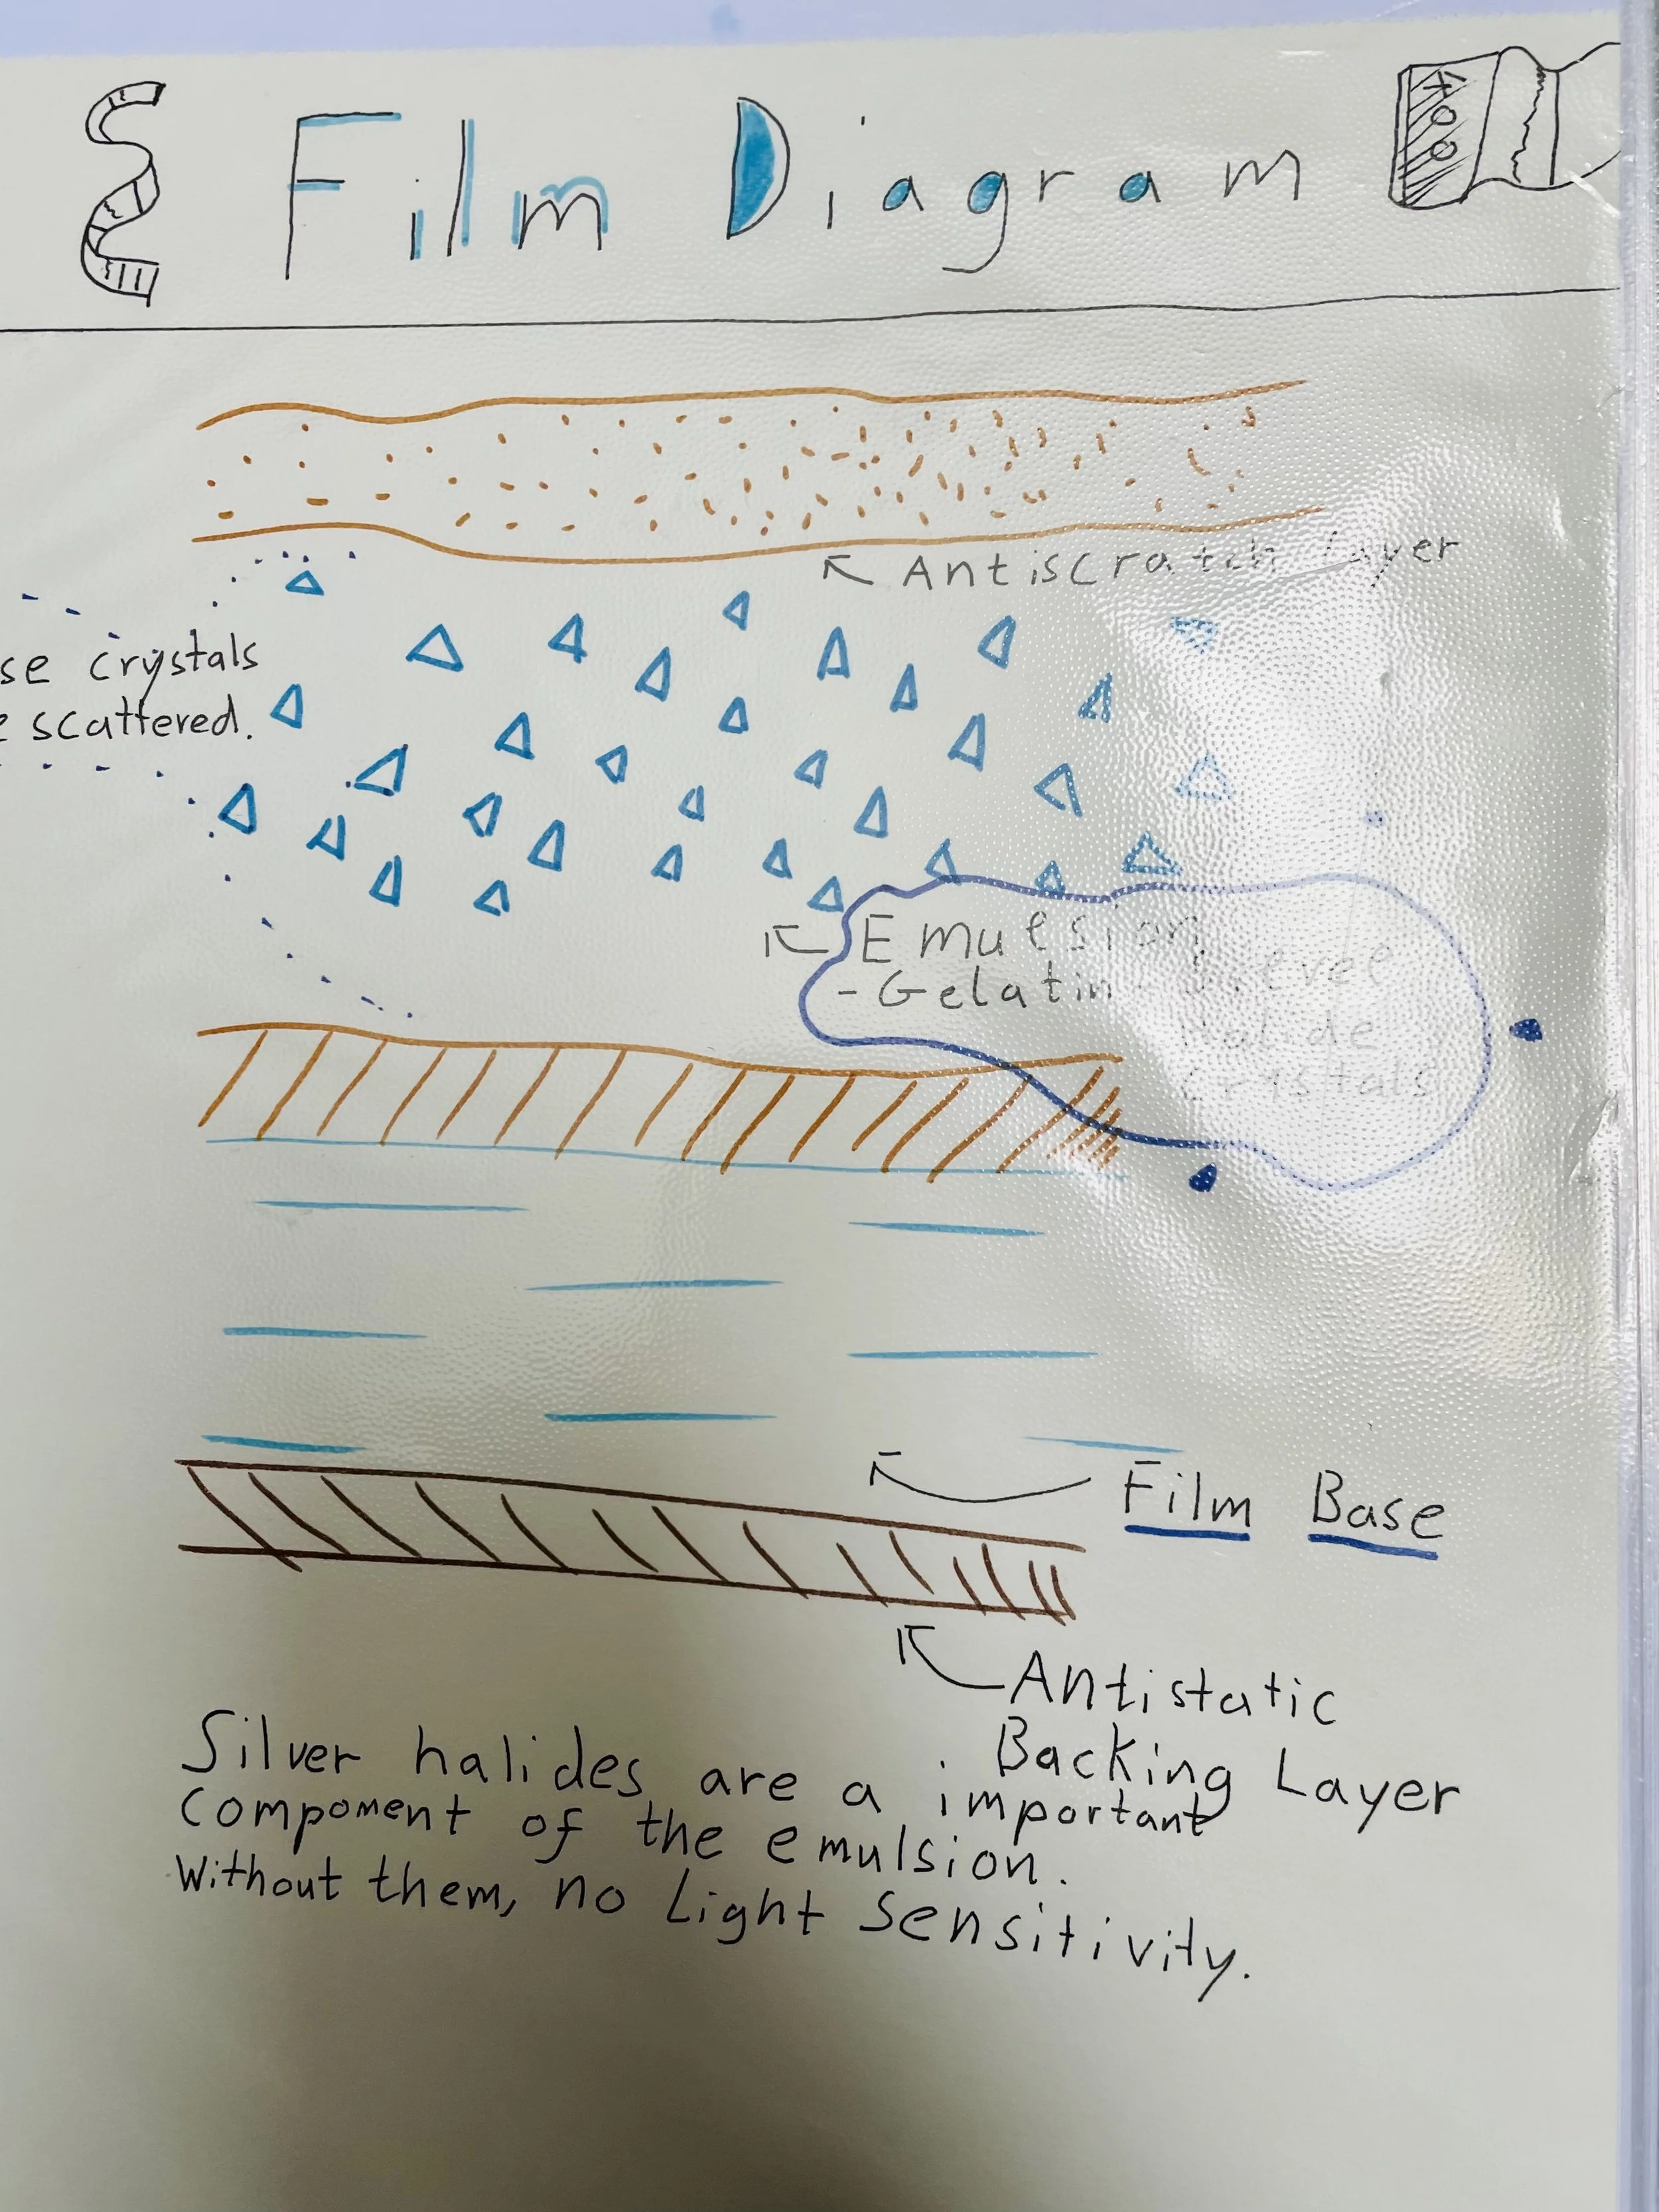 Film Diagram
400
Antiscratch Layer
crystals
scattered.
Emulsion
- Gelatin + Silver
Halide
Crystals
Film Base
Antistatic
Backing Layer
Silver halides are a important
component of the emulsion.
Without them, no Light Sensitivity.